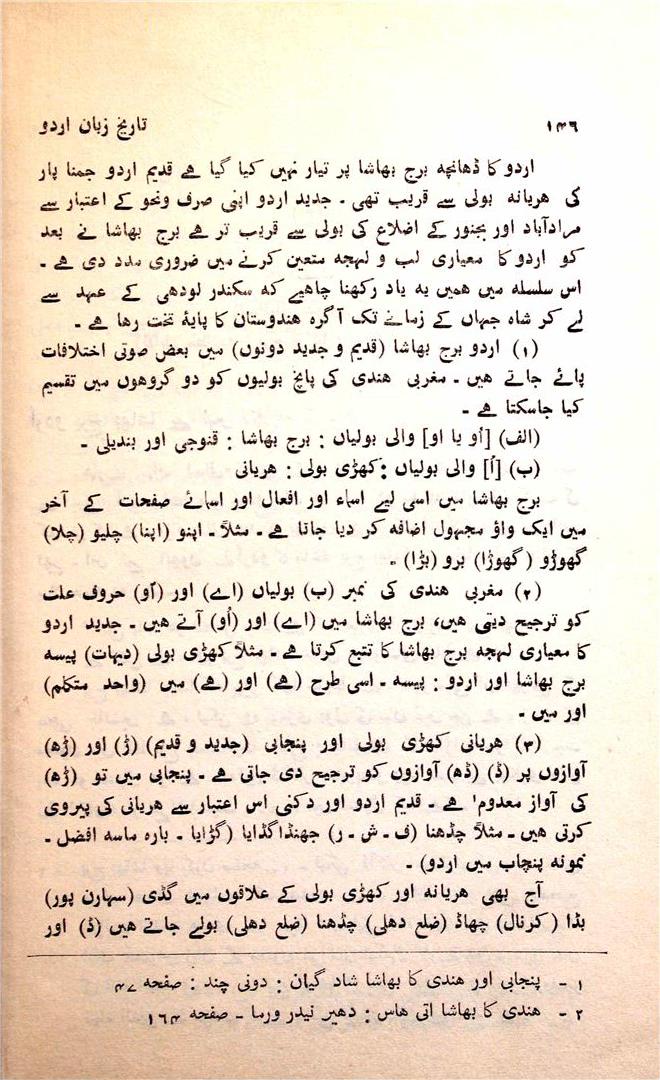 ۱۴۶
تاریخ زبان اردو
اردو کا ڈھانچہ برج بھاشا پر تیار نہیں کیا گیا ہے قدیم اردو جمنا پار
کی ھریانہ بولی سے قریب تھی ۔ جدید اردو اپنی صرف ونحو کے اعتبار سے
مرادآباد اور بجنور کے اضلاع کی بولی سے قریب تر ہے برج بھاشا نے بعد
کو اردو کا معیاری لب و لہجہ متعین کرنے میں ضروری مدد دی ہے ۔
اس سلسلہ میں ھمیں یہ یاد رکھنا چاھیے کہ سکندر لودھی کے عہد سے
لے کر شاہ جہاں کے زمانے تک آگرہ ھندوستان کا پایۂ تخت رھا ھے ۔
(۱) اردو برج بھاشا (قدیم و جدید دونوں) میں بعض صوتی اختلافات
پائے جاتے ھیں ۔ مغربی ھندی کی پانچ بولیوں کو دو گروھوں میں تقسیم
کیا جاسکتا ھے ۔
(الف) [اُو یا او] والی بولیاں : برج بھاشا : قنوجی اور بندیلی ۔
(ب) [اُ] والی بولیاں : کھڑی بولی : ھریانی
برج بھاشا میں اسی لیے اسماء اور افعال اور اسمائے صفحات کے آخر
میں ایک واؤ مجہول اضافہ کر دیا جاتا ھے ۔ مثلاً ۔ اپنو (اپنا) چلیو (چلا)
گھوڑو (گھوڑا) برو (بڑا) ۔
(۲) مغربی ھندی کی نمبر (ب) بولیاں (اے) اور (آو) حروف علت
کو ترجیح دیتی ھیں، برج بھاشا میں (اے) اور (اُو) آتے ھیں ۔ جدید اردو
کا معیاری لہجہ برج بھاشا کا تتبع کرتا ھے ۔ مثلاً کھڑی بولی (دیہات) پیسہ
برج بھاشا اور اردو : پیسہ ۔ اسی طرح (ھے) اور (ھے) میں (واحد متکلم)
اور میں ۔
(۳) ھریانی کھڑی بولی اور پنجابی (جدید و قدیم) (ڑ) اور (ڑھ)
آوازوں پر (ڈ) (ڈھ) آوازوں کو ترجیح دی جاتی ھے ۔ پنجابی میں تو (ڑھ)
کی آواز معدوم' ھے ۔ قدیم اردو اور دکنی اس اعتبار سے ھریانی کی پیروی
کرتی ھیں ۔ مثلاً چڈھنا (ف ۔ ش ۔ ر) جھنڈاگڈایا (گڑایا ۔ بارہ ماسہ افضل ۔
نمونہ پنجاب میں اردو) ۔
آج بھی ھریانہ اور کھڑی بولی کے علاقوں میں گڈی (سہارن پور)
بڈا (کرنال) چھاڈ (ضلع دھلی) چڈھنا (ضلع دھلی) بولے جاتے ھیں (ڈ) اور
۱ ۔ پنجابی اور ھندی کا بھاشا شاد گیان : دونی چند : صفحہ ۴۷
۲ ۔ ھندی کا بھاشا اتی ھاس : دھیر نیدر ورما ۔ صفحہ ۱۶۴